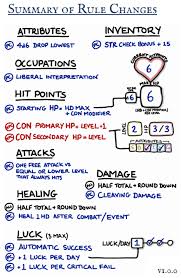 SUMMARY OF RULE CHANGES
ATTRIBUTES
4d6 DROP LOWEST
INVENTORY
STR CHECK BONUS + 15
OCCUPATIONS
LIBERAL INTERPRETATION
HIT POINTS
STARTING HP = HD MAX + CON MODIFIER
6
6
CON PRIMARY HP = LEVEL -1
CON SECONDARY HP = LEVEL
LEVEL
2
3/3
ATTACKS
ONE FREE ATTACK VS
EQUAL OR LOWER LEVEL
THAT ALWAYS HITS
DAMAGE
HALF TOTAL + ROUND DOWN
CLEAVING DAMAGE
HEALING
HALF TOTAL + ROUND DOWN
HEAL 1 HD AFTER COMBAT/EVENT
LUCK (3 MAX)
AUTOMATIC SUCCESS
+1 LUCK PER CRITICAL FAIL
LUCK/DAY
1
V1.0.0